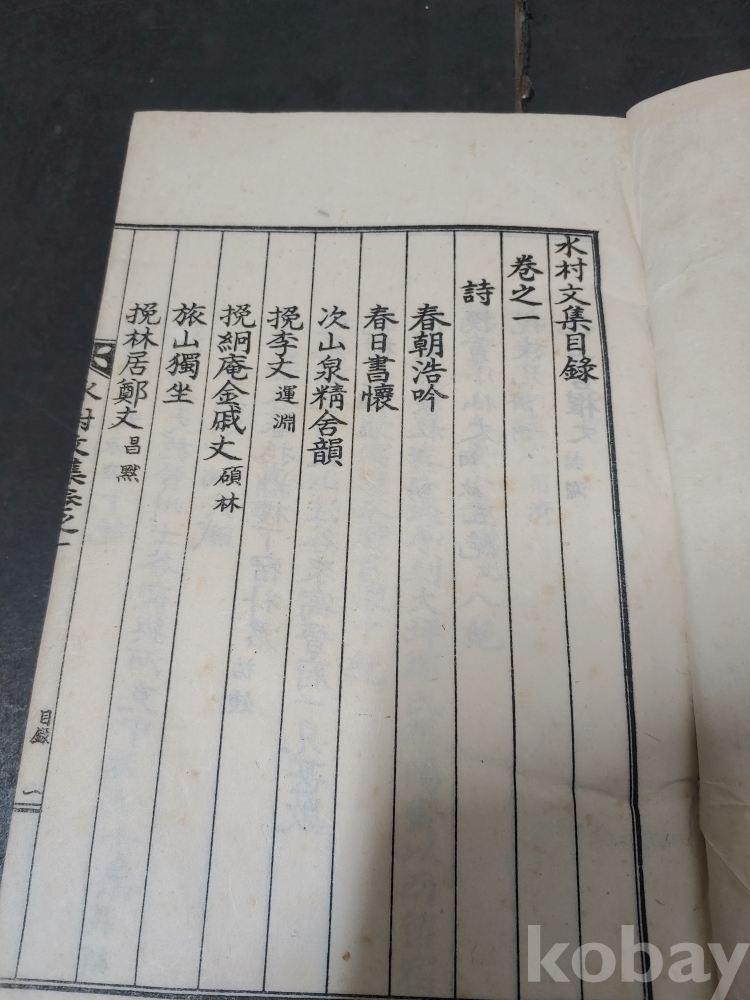 水村文集目錄
卷之一
詩
春朝浩吟
春日書懷
次山泉精舍韻
挽李丈 運淵
挽絅庵金戚丈 碩林
旅山獨坐
挽林居鄭丈 昌黙
水村文集卷之一
目錄
一
kobay